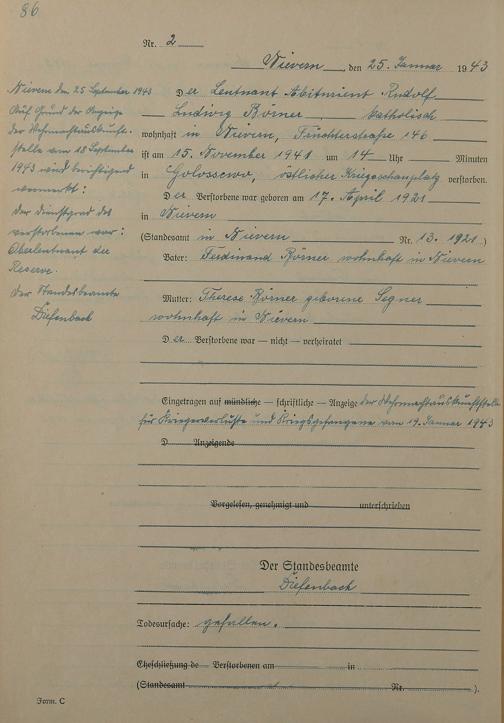 86
Nr. 2
Nievern, den 25. Januar 1943
Der Leutnant Abiturient Rudolf
Ludwig Börner katholisch
wohnhaft in Nievern, Fruchterstraße 146
ist am 15. November 1941 um 14 Uhr Minuten
in Golossowo, östlicher Kriegsschauplatz verstorben.
Der Verstorbene war geboren am 17. April 1921
in Nievern
(Standesamt in Nievern Nr. 13. 1921)
Vater: Ferdinand Börner wohnhaft in Nievern
Mutter: Therese Börner geborene Segner
wohnhaft in Nievern
Der Verstorbene war — nicht — verheiratet
Eingetragen auf mündliche — schriftliche — Anzeige der Wehrmachtauskunftstelle
für Kriegerverluste und Kriegsgefangene vom 19. Januar 1943
D Anzeigende
Vorgelesen, genehmigt und unterschrieben
Der Standesbeamte
Diefenbach
Todesursache: gefallen.
Eheschließung de Verstorbenen am in
(Standesamt Nr. ).
Form. C
Nievern den 25 September 1943
Auf Grund der Anzeige
der Wehrmachtauskunft-
stelle vom 18 September
1943 wird berichtigend
vermerkt:
Der Dienstgrad des
Verstorbenen war:
Oberleutnant der
Reserve.
Der Standesbeamte
Diefenbach